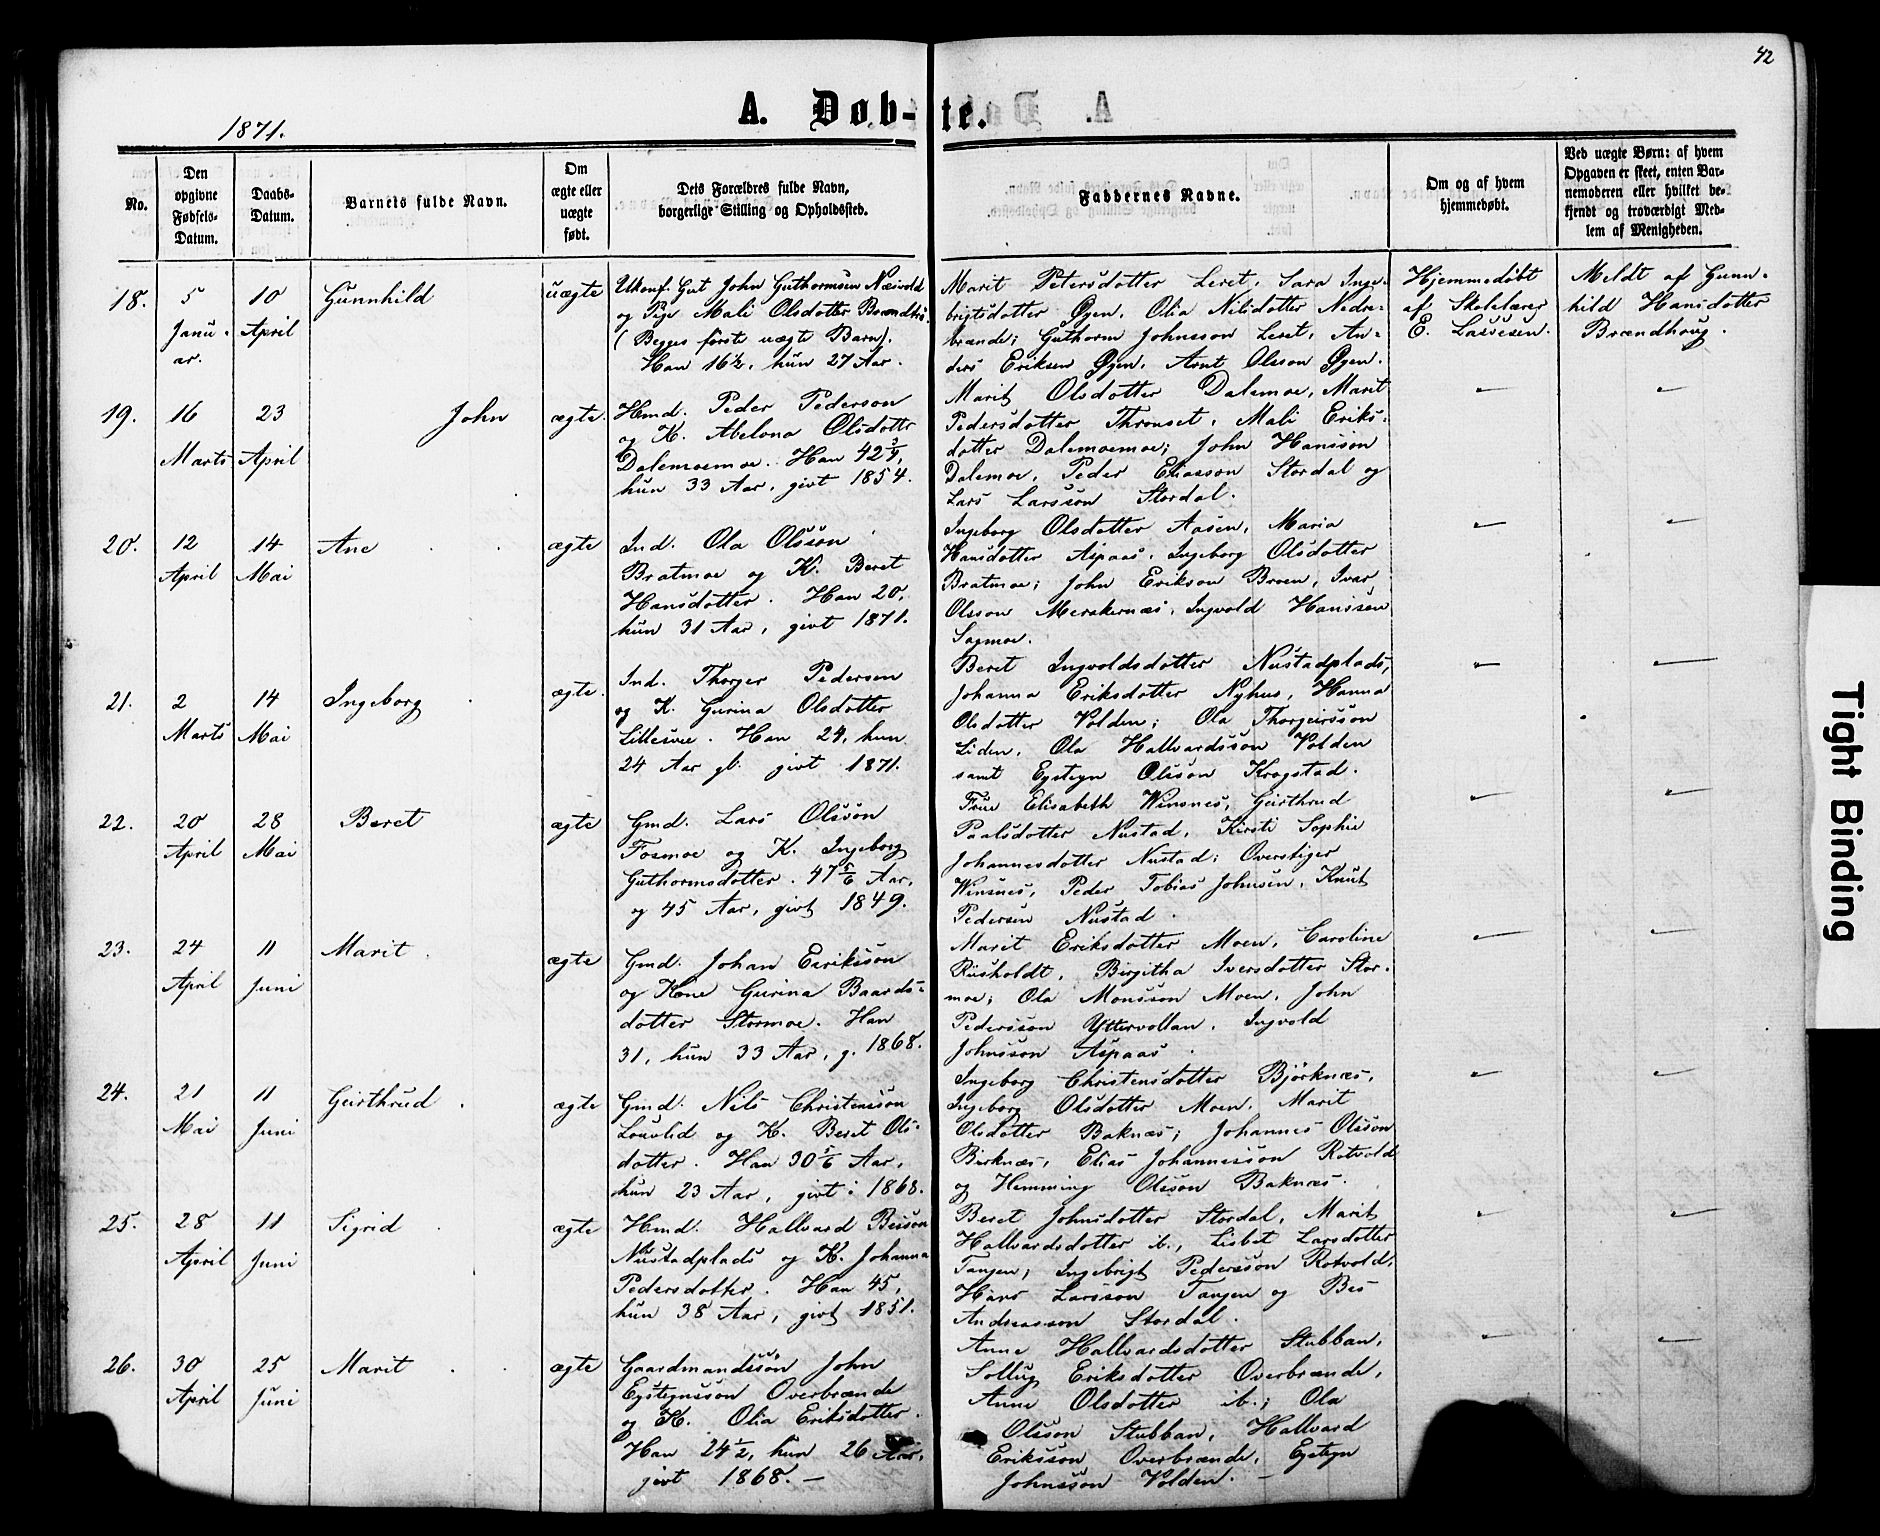 42
1871.
A. Døb-te.
No.
Den opgivne Fødsels-Datum.
Daabs-Datum.
Barnets fulde Navn.
Om ægte eller uægte født.
Dets Forældres fulde Navn, borgerlige Stilling og Opholdssted.
Faddernes Navne.
Om og af hvem hjemmedøbt.
Ved uægte Børn: af hvem Opgaven er skeet, enten Barnemoderen eller hvilket bekjendt og troværdigt Medlem af Menigheden.
18.
5 Janu-
ar.
10 April
Gunnhild
uægte
Ukonf. Gut John Guthormsen Næivold
og Pige Mali Olsdotter
(Begges første uægte Barn).
Han 16½, hun 27 Aar.
Marit Petersdotter Leret, Sara Inge-
brigtsdotter Øyen, Olia Nilsdotter Nedre-
brænde; Guthorm Johnsson Leret, An-
ders Eriksen Øyen, Arnt Olsson Øyen.
Hjemmedøbt
af Skolelærer
E. Lassesen.
Meldt af Gunn-
hild Hansdotter
Brændhoug.
19.
16 Marts
23 April
John
ægte.
Hmd. Peder Pederson
og K. Abelona Olsdotter
Dalemoemoe. Han 42 ¾,
hun 33 Aar, givt 1854.
Marit Olsdotter Dalemoe, Marit
Pedersdotter Thronset, Mali Eriks-
dotter Dalemoemoe; John Hansson
Dalemoe, Peder Eliasson Stordal og
Lars Larsson Stordal.
20.
12 April
14 Mai
Ane
ægte
Ind. Ola Olsson
Bratmoe og K. Beret
Hansdotter. Han 20,
hun 31 Aar, givt 1871.
Ingeborg Olsdotter Aasen, Maria
Hansdotter Aspaas, Ingeborg Olsdotter
Bratmoe; John Erikson Broen, Ivar
Olsson Merakernæs, Ingvold Hanssen
Sagmoe.
21.
2 Marts
14 Mai
Ingeborg
ægte.
Ind. Thorger Pedersen
og K. Gurina Olsdotter
Lillesvee. Han 24, hun
24 Aar gl. givt 1871.
Beret Ingvoldsdotter Nustadplads,
Johanna Eriksdotter Nyhus, Hanna
Olsdotter Volden; Ola Thorgeirsson
Liden, Ola Hallvardsson Volden
samt Eysteyn Olsson Krogstad.
22.
20 April
28 Mai
Beret
ægte
Gmd. Lars Olsson
Fosmoe og K. Ingeborg
Guthormsdotter. 47 5/6 Aar,
og 45 Aar, givt 1849.
Frue Elisabeth Winsnes, Geirthrud
Paalsdotter Nustad, Kirsti Sophie
Johannesdotter Nustad; Overstiger
Winsnes, Peder Tobias Johnsen, Knut
Pedersen Nustad.
23.
24 April
11 Juni
Marit
ægte
Gmd. Johan Eeriksson
og Kone Gurina Baards-
dotter Stormoe. Han
31, hun 33 Aar, g. 1868.
Marit Eriksdotter Moen, Caroline
Riisholdt, Birgitha Iversdotter Stor-
moe; Ola Monsson Moen, John
Pedersson Yttervollan, Ingvold
Johnsson Aspaas.
24.
21 Mai
11 Juni
Geirthrud
ægte
Gmd. Nils Christensson
Louvlid og K. Beret Ols-
dotter. Han 30 5/6 Aar,
hun 23 Aar, givt i 1868.
Ingeborg Christensdotter Bjørknæs,
Ingeborg Olsdotter Moen, Marit
Olsdotter Baknæs; Johannes Olsson
Birknæs, Elias Johannesson Rotvold
og Hemming Olsson Baknæs.
25.
28 April
11 Juni
Sigrid
ægte
Hmd. Hallvard Besson
Nustadplads og K. Johanna
Pedersdotter. Han 45,
hun 38 Aar, givt 1851.
Beret Johnsdotter Stordal, Marit
Hallvardsdotter ib., Lisbet Larsdotter
Tangen; Ingebrigt Pedersson Rotvold,
Hans Larsson Tangen og Bes
Andreasson Stordal.
26.
30 April
25 Juni
Marit
ægte
Gaardmandssøn John
Eysteynsson Overbrænde
og K. Olia Eriksdotter.
Han 24 ½, hun 26 Aar,
givt 1868.—
Anne Hallvardsdotter Stubban,
Sollug Eriksdotter Overbrænde,
Anne Olsdotter ib.; Ola
Olsson Stubban, Hallvard
Eriksson Overbrænde, Eysteyn
Johnsson Volden. —
Tight Binding